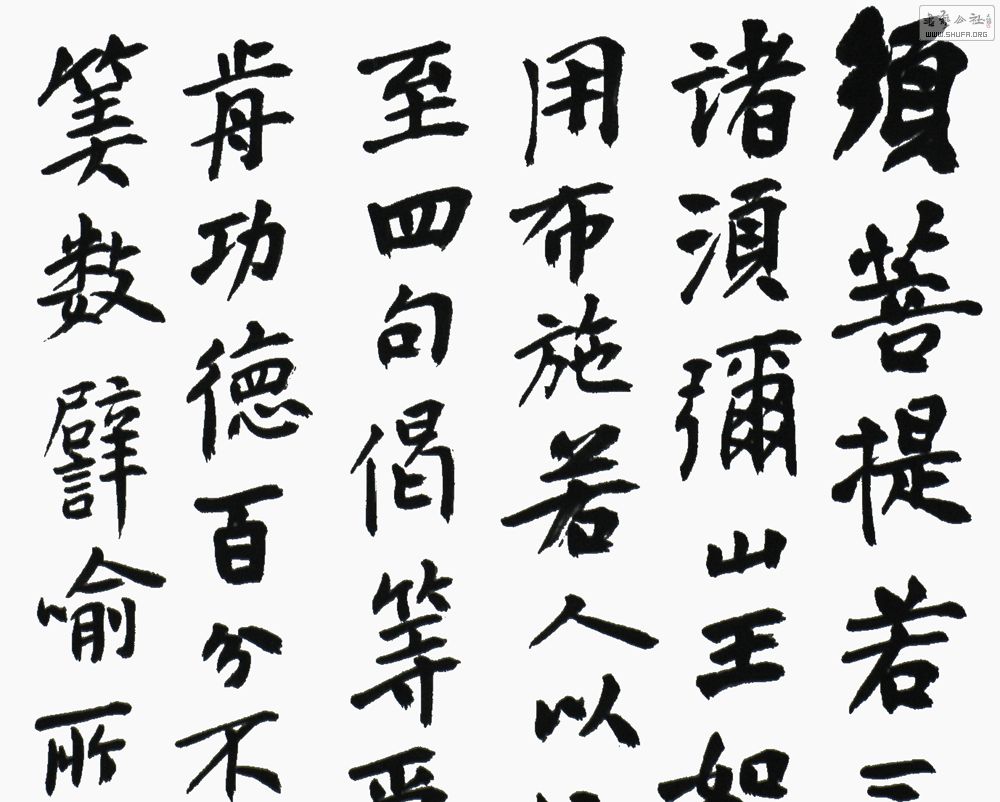 須菩提若三
諸湏彌山王如
用布施若人以
至四句偈等
歬功德百分不
筭数譬喻所
書法公社
WWW.SHUFA.ORG